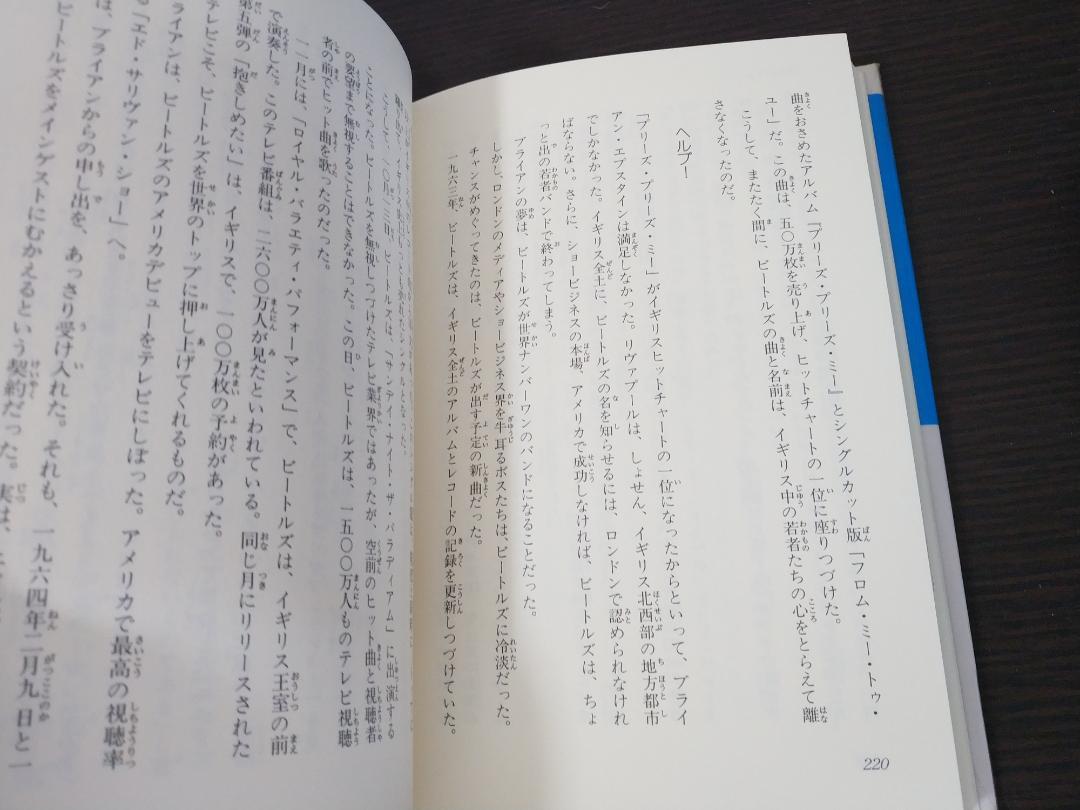 曲をおさめたアルバム『プリーズ・プリーズ・ミー』とシングルカット版「フロム・ミー・トゥ・
ユー」だ。この曲は、五〇万枚を売り上げ、ヒットチャートの一位に座りつづけた。
こうして、またたく間に、ビートルズの曲と名前は、イギリス中の若者たちの心をとらえて離
さなくなったのだ。
ヘルプ!
「プリーズ・プリーズ・ミー」がイギリスヒットチャートの一位になったからといって、ブライ
アン・エプスタインは満足しなかった。リヴァプールは、しょせん、イギリス北西部の地方都市
でしかなかった。イギリス全土に、ビートルズの名を知らせるには、ロンドンで認められなけれ
ばならない。さらに、ショービジネスの本場、アメリカで成功しなければ、ビートルズは、ちょ
っと出の若者バンドで終わってしまう。
ブライアンの夢は、ビートルズが世界ナンバーワンのバンドになることだった。
しかし、ロンドンのメディアやショービジネス界を牛耳るボスたちは、ビートルズに冷淡だった。
チャンスがめぐってきたのは、ビートルズが出す予定の新曲だった。
一九六三年、ビートルズは、イギリス全土のアルバムとレコードの記録を更新しつづけていた。
220
こうして、一〇月一三日、ビートルズは、「サンデイ・ナイト・ザ・パラディアム」に出演する
ことになった。ビートルズを無視しつづけたテレビ業界ではあったが、空前のヒット曲と視聴者
の要望まで無視することはできなかった。この日、ビートルズは、一五〇〇万人ものテレビ視聴
者の前でヒット曲を歌ったのだった。
一一月には、「ロイヤル・バラエティ・パフォーマンス」で、ビートルズは、イギリス王室の前
で演奏した。このテレビ番組は、二六〇〇万人が見たといわれている。同じ月にリリースされた
第五弾の「抱きしめたい」は、イギリスで、一〇〇万枚の予約があった。
テレビこそ、ビートルズを世界のトップに押し上げてくれるものだ。
ライアンは、ビートルズのアメリカデビューをテレビにしぼった。アメリカで最高の視聴率
「エド・サリヴァン・ショー」へ。
は、ブライアンからの申し出を、あっさり受け入れた。それも、一九六四年二月九日と一
ビートルズをメインゲストにむかえるという契約だった。実は、